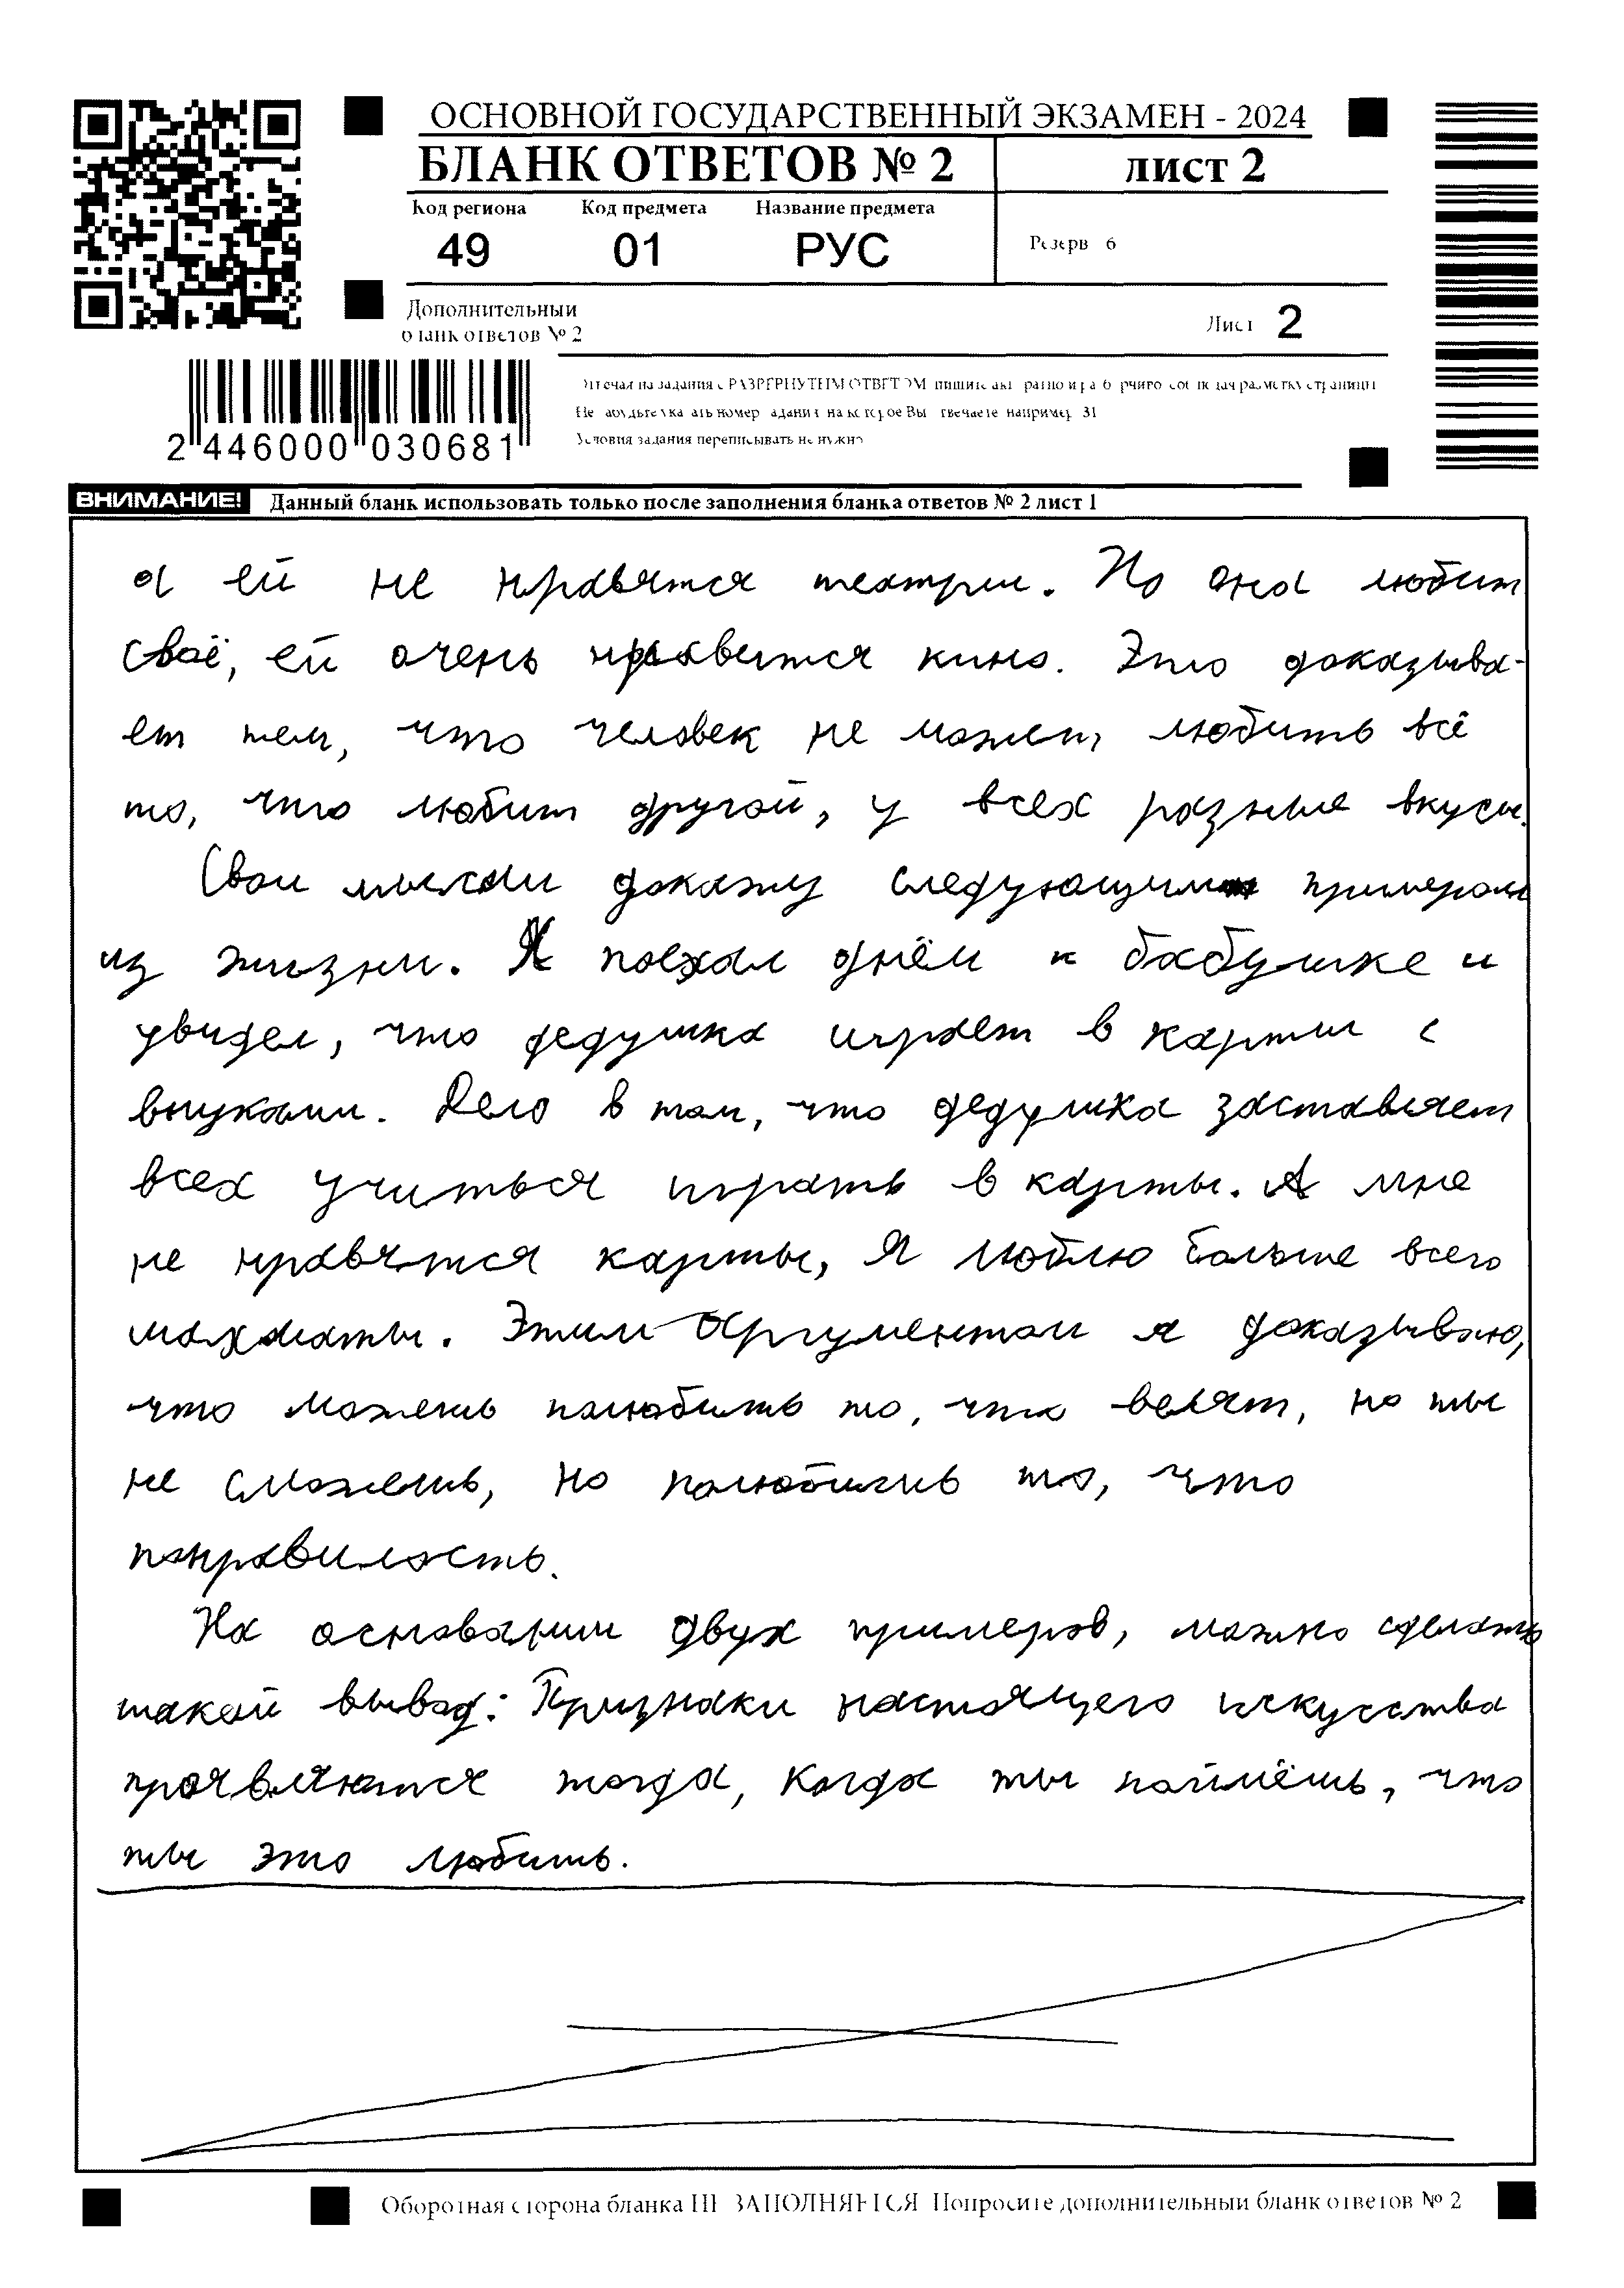 ОСНОВНОЙ ГОСУДАРСТВЕННЫЙ ЭКЗАМЕН - 2024
БЛАНК ОТВЕТОВ № 2
лист 2
Код региона Код предмета Название предмета
49 01 РУС
Резерв 6
Дополнительный
бланк ответов № 2
Лист 2
2 446000 030681
Условия задания переписывать не нужно
ВНИМАНИЕ! Данный бланк использовать только после заполнения бланка ответов № 2 лист 1
а ей не нравятся театры. Но она любит
своё, ей очень нравится кино. Это доказыва-
ет тем, что человек не может любить всё
то, что любит другой, у всех разные вкусы.
Свои мысли докажу следующим примером
из жизни. Я поехал днём к бабушке и
увидел, что дедушка играет в карты с
внуками. Дело в том, что дедушка заставляет
всех учиться играть в карты. А мне
не нравятся карты, я люблю больше всего
шахматы. Этим аргументом я доказываю,
что можешь полюбить то, что велят, но ты
не сможешь, но полюбишь то, что
понравилось.
На основании двух примеров, можно сделать
такой вывод: Признаки настоящего искусства
проявляются тогда, когда ты поймёшь, что
ты это любишь.
Оборотная сторона бланка НЕ ЗАПОЛНЯЕТСЯ Попросите дополнительный бланк ответов № 2